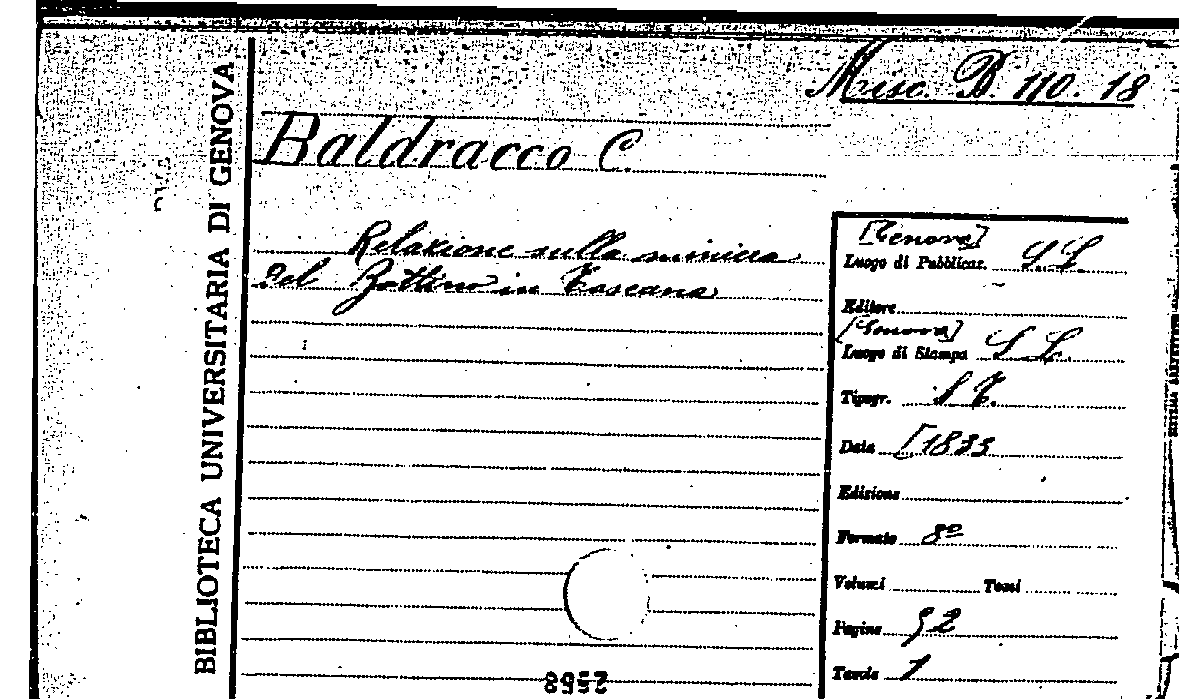 Misc. B. 110. 18
BIBLIOTECA UNIVERSITARIA DI GENOVA
Baldracco C.
Relazione sulla miniera
del Bottino in Toscana
[Genova]
Luogo di Pubblicaz. S. L.
Editore
[Genova]
Luogo di Stampa S. L.
Tipogr. S. T.
Data [1833
Edizione
Formato 8º
Volumi Tomi
Pagine 52
Tavole 1